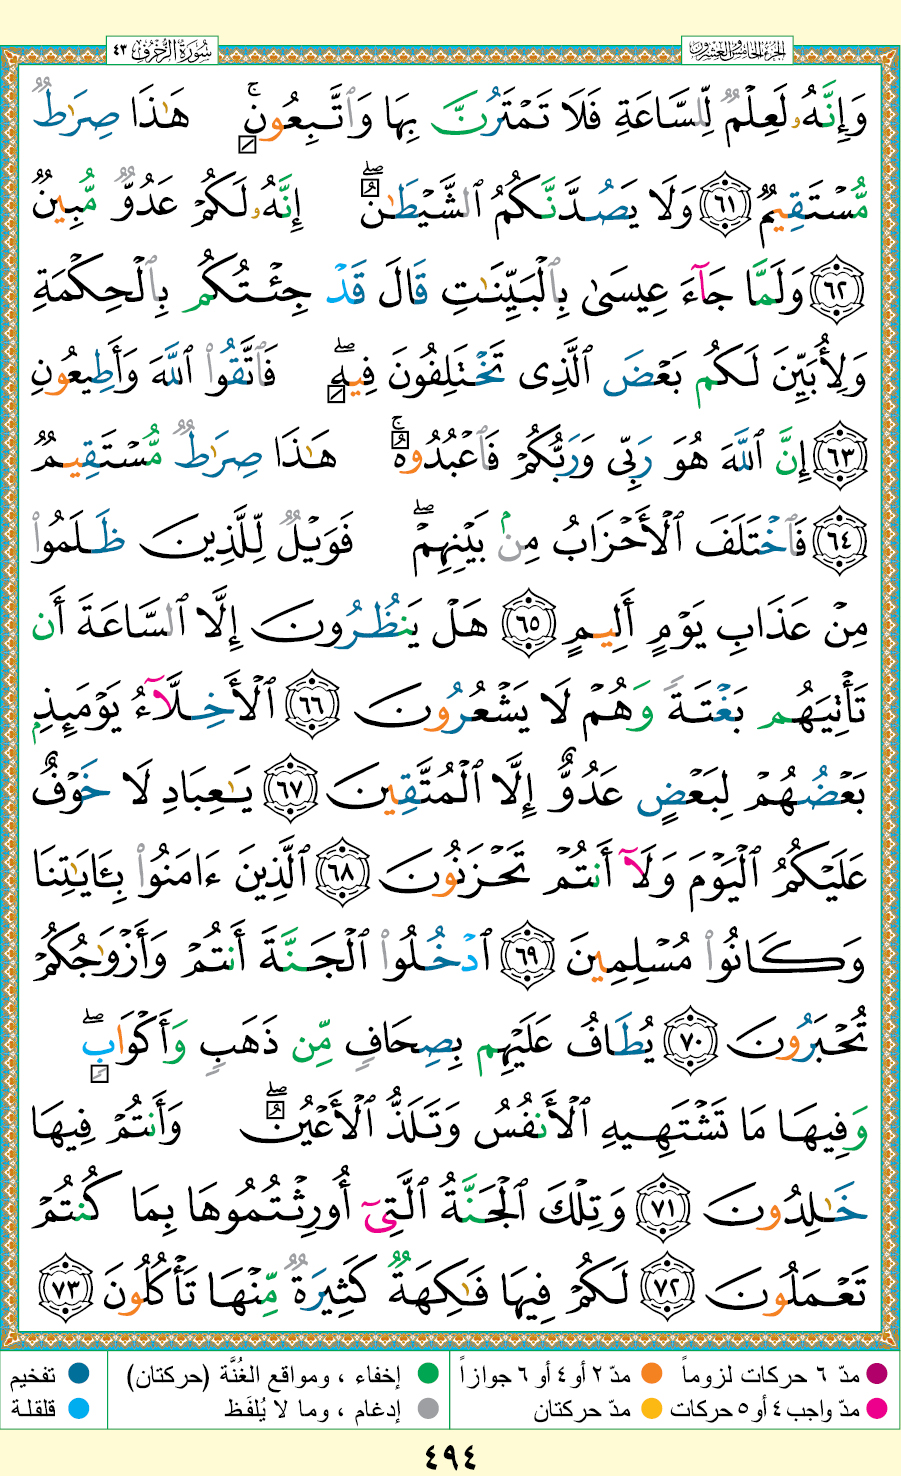 سُورَةُ الزُّخْرُفِ ٤٣
الجُزْءُ الخَامِسُ وَالعِشْرُونَ
وَإِنَّهُۥ لَعِلْمٌ لِّلسَّاعَةِ فَلَا تَمْتَرُنَّ بِهَا وَٱتَّبِعُونِ ۚ هَٰذَا صِرَٰطٌ
مُّسْتَقِيمٌ ﴿٦١﴾ وَلَا يَصُدَّنَّكُمُ ٱلشَّيْطَٰنُ ۖ إِنَّهُۥ لَكُمْ عَدُوٌّ مُّبِينٌ
﴿٦٢﴾ وَلَمَّا جَآءَ عِيسَىٰ بِٱلْبَيِّنَٰتِ قَالَ قَدْ جِئْتُكُم بِٱلْحِكْمَةِ
وَلِأُبَيِّنَ لَكُم بَعْضَ ٱلَّذِى تَخْتَلِفُونَ فِيهِ ۖ فَٱتَّقُوا۟ ٱللَّهَ وَأَطِيعُونِ
﴿٦٣﴾ إِنَّ ٱللَّهَ هُوَ رَبِّى وَرَبُّكُمْ فَٱعْبُدُوهُ ۚ هَٰذَا صِرَٰطٌ مُّسْتَقِيمٌ
﴿٦٤﴾ فَٱخْتَلَفَ ٱلْأَحْزَابُ مِنۢ بَيْنِهِمْ ۖ فَوَيْلٌ لِّلَّذِينَ ظَلَمُوا۟
مِنْ عَذَابِ يَوْمٍ أَلِيمٍ ﴿٦٥﴾ هَلْ يَنظُرُونَ إِلَّا ٱلسَّاعَةَ أَن
تَأْتِيَهُم بَغْتَةً وَهُمْ لَا يَشْعُرُونَ ﴿٦٦﴾ ٱلْأَخِلَّآءُ يَوْمَئِذٍۭ
بَعْضُهُمْ لِبَعْضٍ عَدُوٌّ إِلَّا ٱلْمُتَّقِينَ ﴿٦٧﴾ يَٰعِبَادِ لَا خَوْفٌ
عَلَيْكُمُ ٱلْيَوْمَ وَلَآ أَنتُمْ تَحْزَنُونَ ﴿٦٨﴾ ٱلَّذِينَ ءَامَنُوا۟ بِـَٔايَٰتِنَا
وَكَانُوا۟ مُسْلِمِينَ ﴿٦٩﴾ ٱدْخُلُوا۟ ٱلْجَنَّةَ أَنتُمْ وَأَزْوَٰجُكُمْ
تُحْبَرُونَ ﴿٧٠﴾ يُطَافُ عَلَيْهِم بِصِحَافٍ مِّن ذَهَبٍ وَأَكْوَابٍ ۖ
وَفِيهَا مَا تَشْتَهِيهِ ٱلْأَنفُسُ وَتَلَذُّ ٱلْأَعْيُنُ ۖ وَأَنتُمْ فِيهَا
خَٰلِدُونَ ﴿٧١﴾ وَتِلْكَ ٱلْجَنَّةُ ٱلَّتِىٓ أُورِثْتُمُوهَا بِمَا كُنتُمْ
تَعْمَلُونَ ﴿٧٢﴾ لَكُمْ فِيهَا فَٰكِهَةٌ كَثِيرَةٌ مِّنْهَا تَأْكُلُونَ ﴿٧٣﴾
مدّ ٦ حركات لزوماً
مدّ ٢ أو ٤ أو ٦ جوازاً
إخفاء ، ومواقع الغُنَّة (حركتان)
تفخيم
مدّ واجب ٤ أو ٥ حركات
مدّ حركتان
إدغام ، وما لا يُلفَظ
قلقلة
٤٩٤